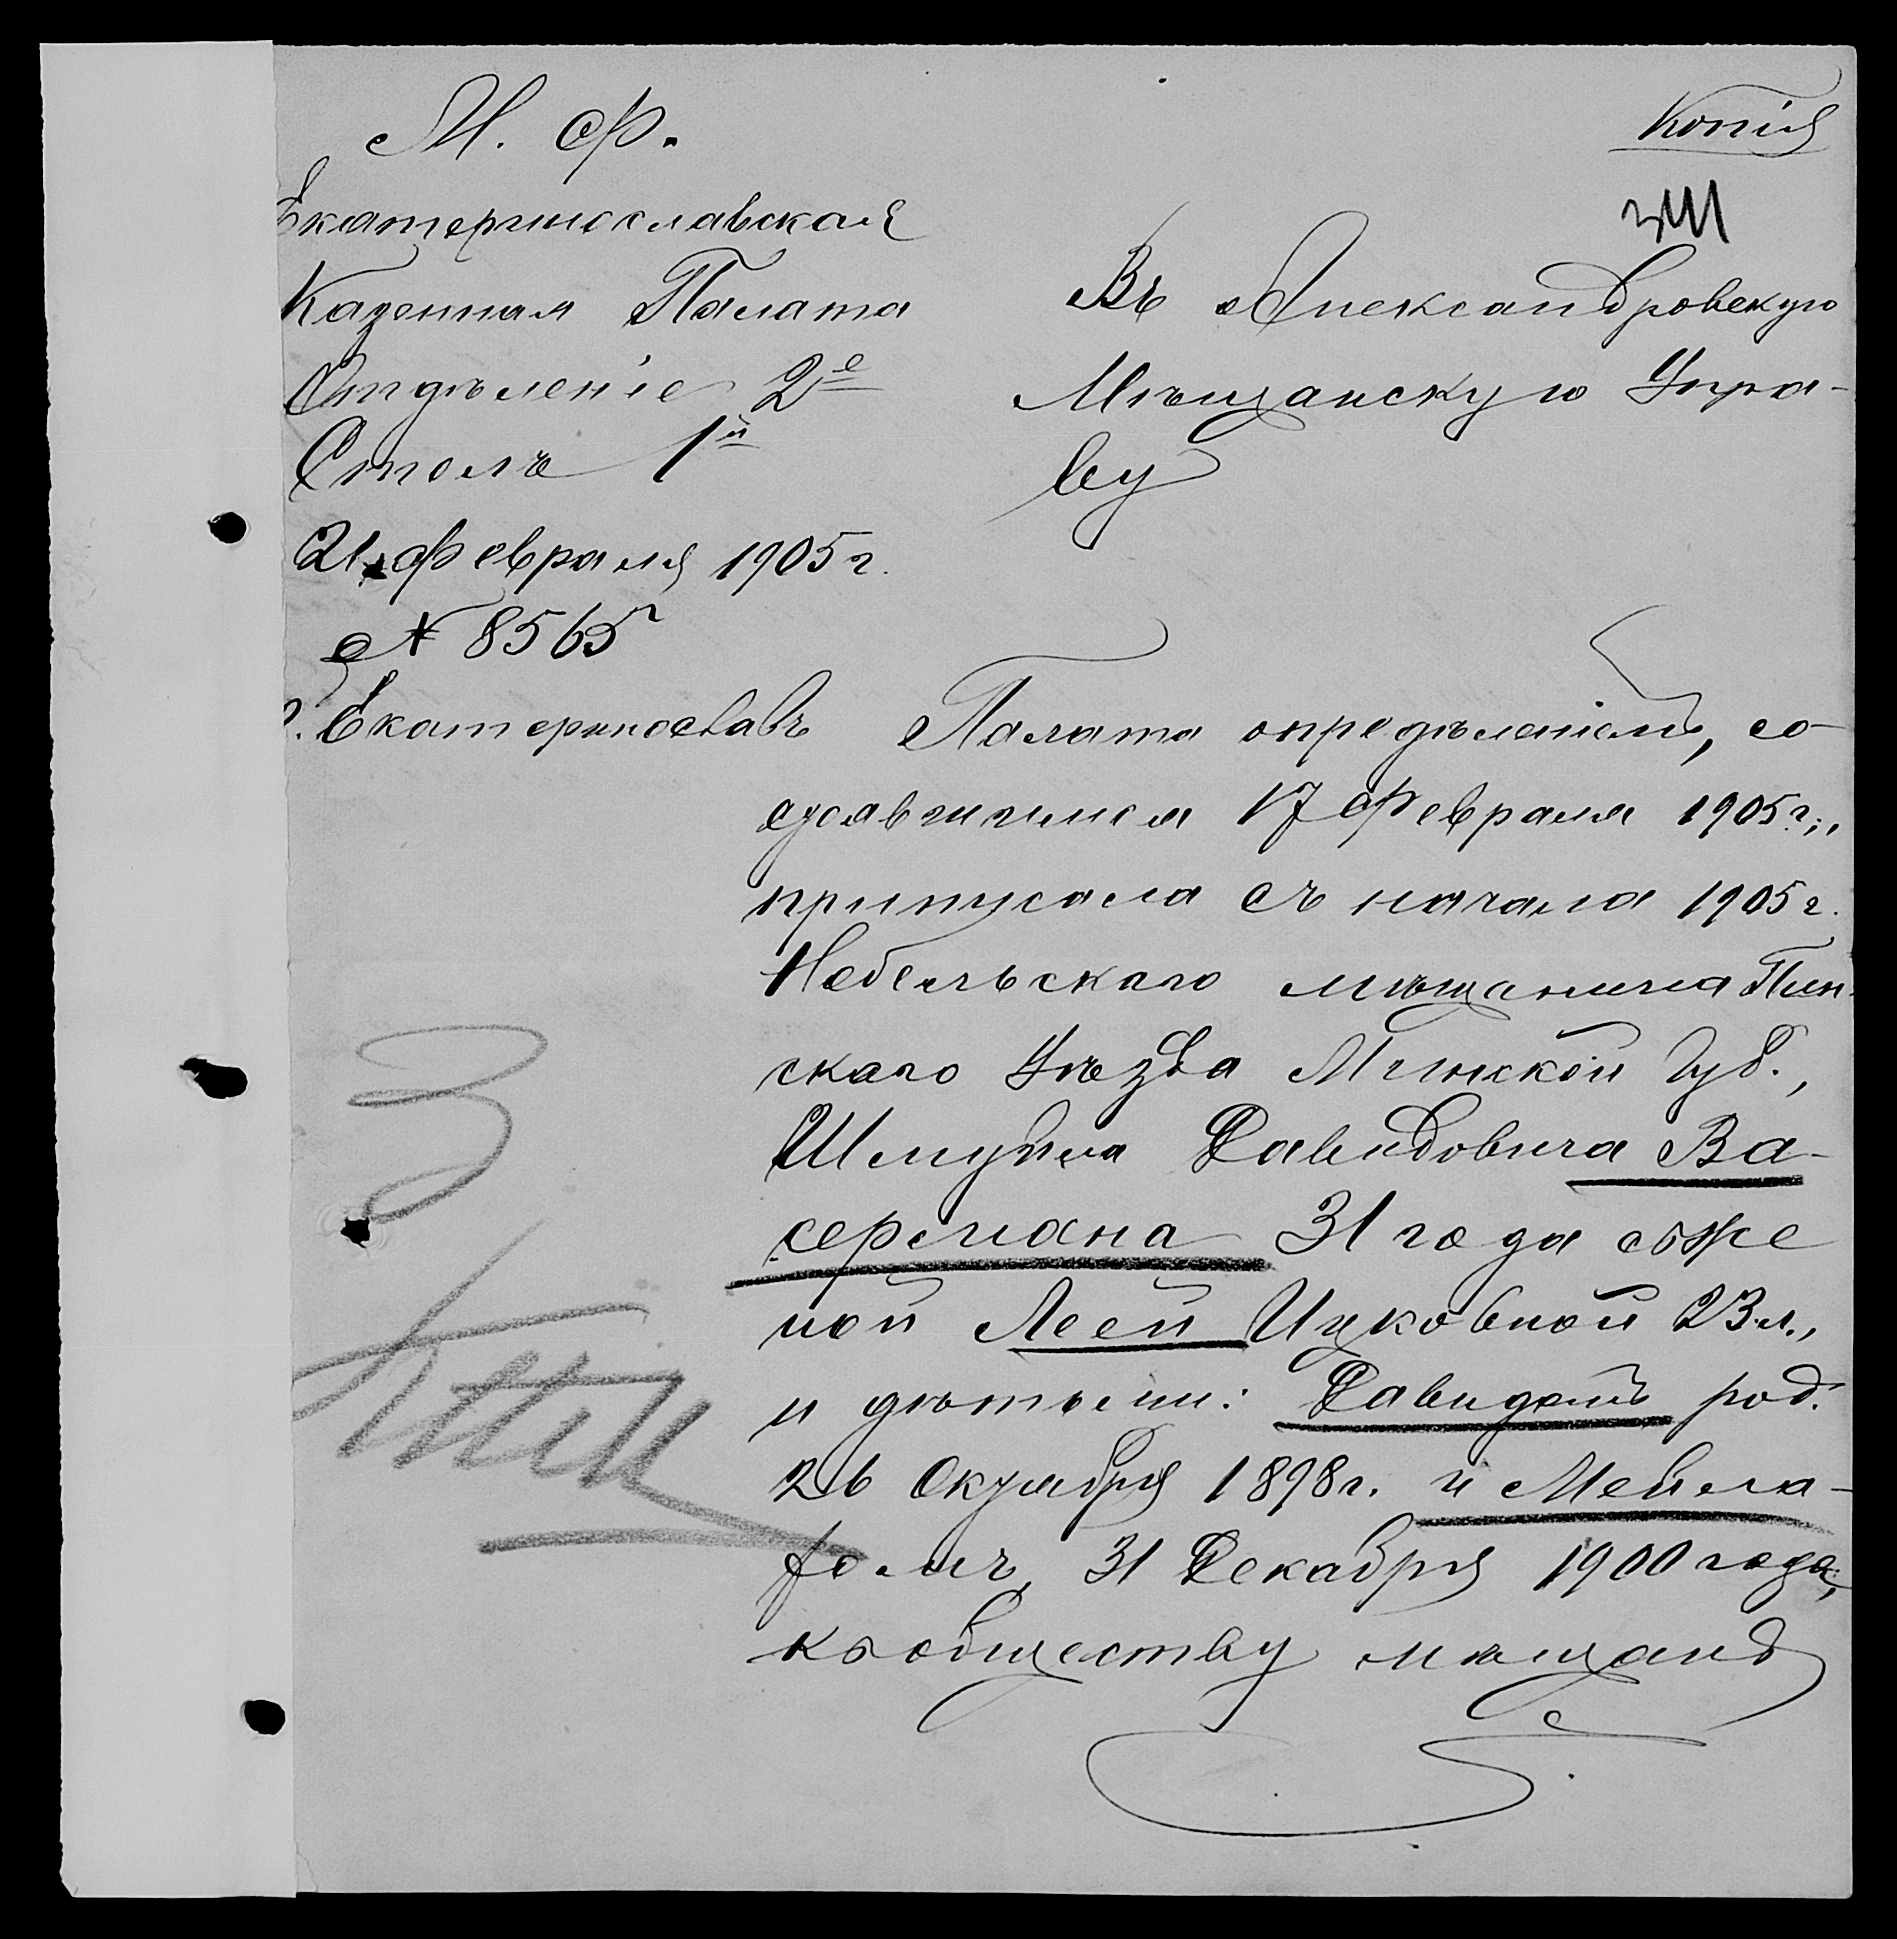 М. Ф.
Екатеринославская
Казенная Палата
Отдѣленіе 2е
Столъ 1й
21 февраля 1905 г.
№ 8565
г. Екатеринославъ
Копія
Въ Александровскую
Мѣщанскую Упра-
ву
Палата опредѣленіемъ, со-
стоявшимся 17 Февраля 1905 г.,
приписала съ начала 1905 г.
Небельскаго мѣщанина Пин-
скаго Уѣзда Минской Губ.,
Шмуйла Давидовича Ва-
сермана 31 года съ же
ной Леей Ицковной 23 л.,
и дѣтьми: Давидомъ род.
26 Октября 1898 г. и Мейла-
хомъ 31 Декабря 1900 года,
къ обществу мѣщанъ
3